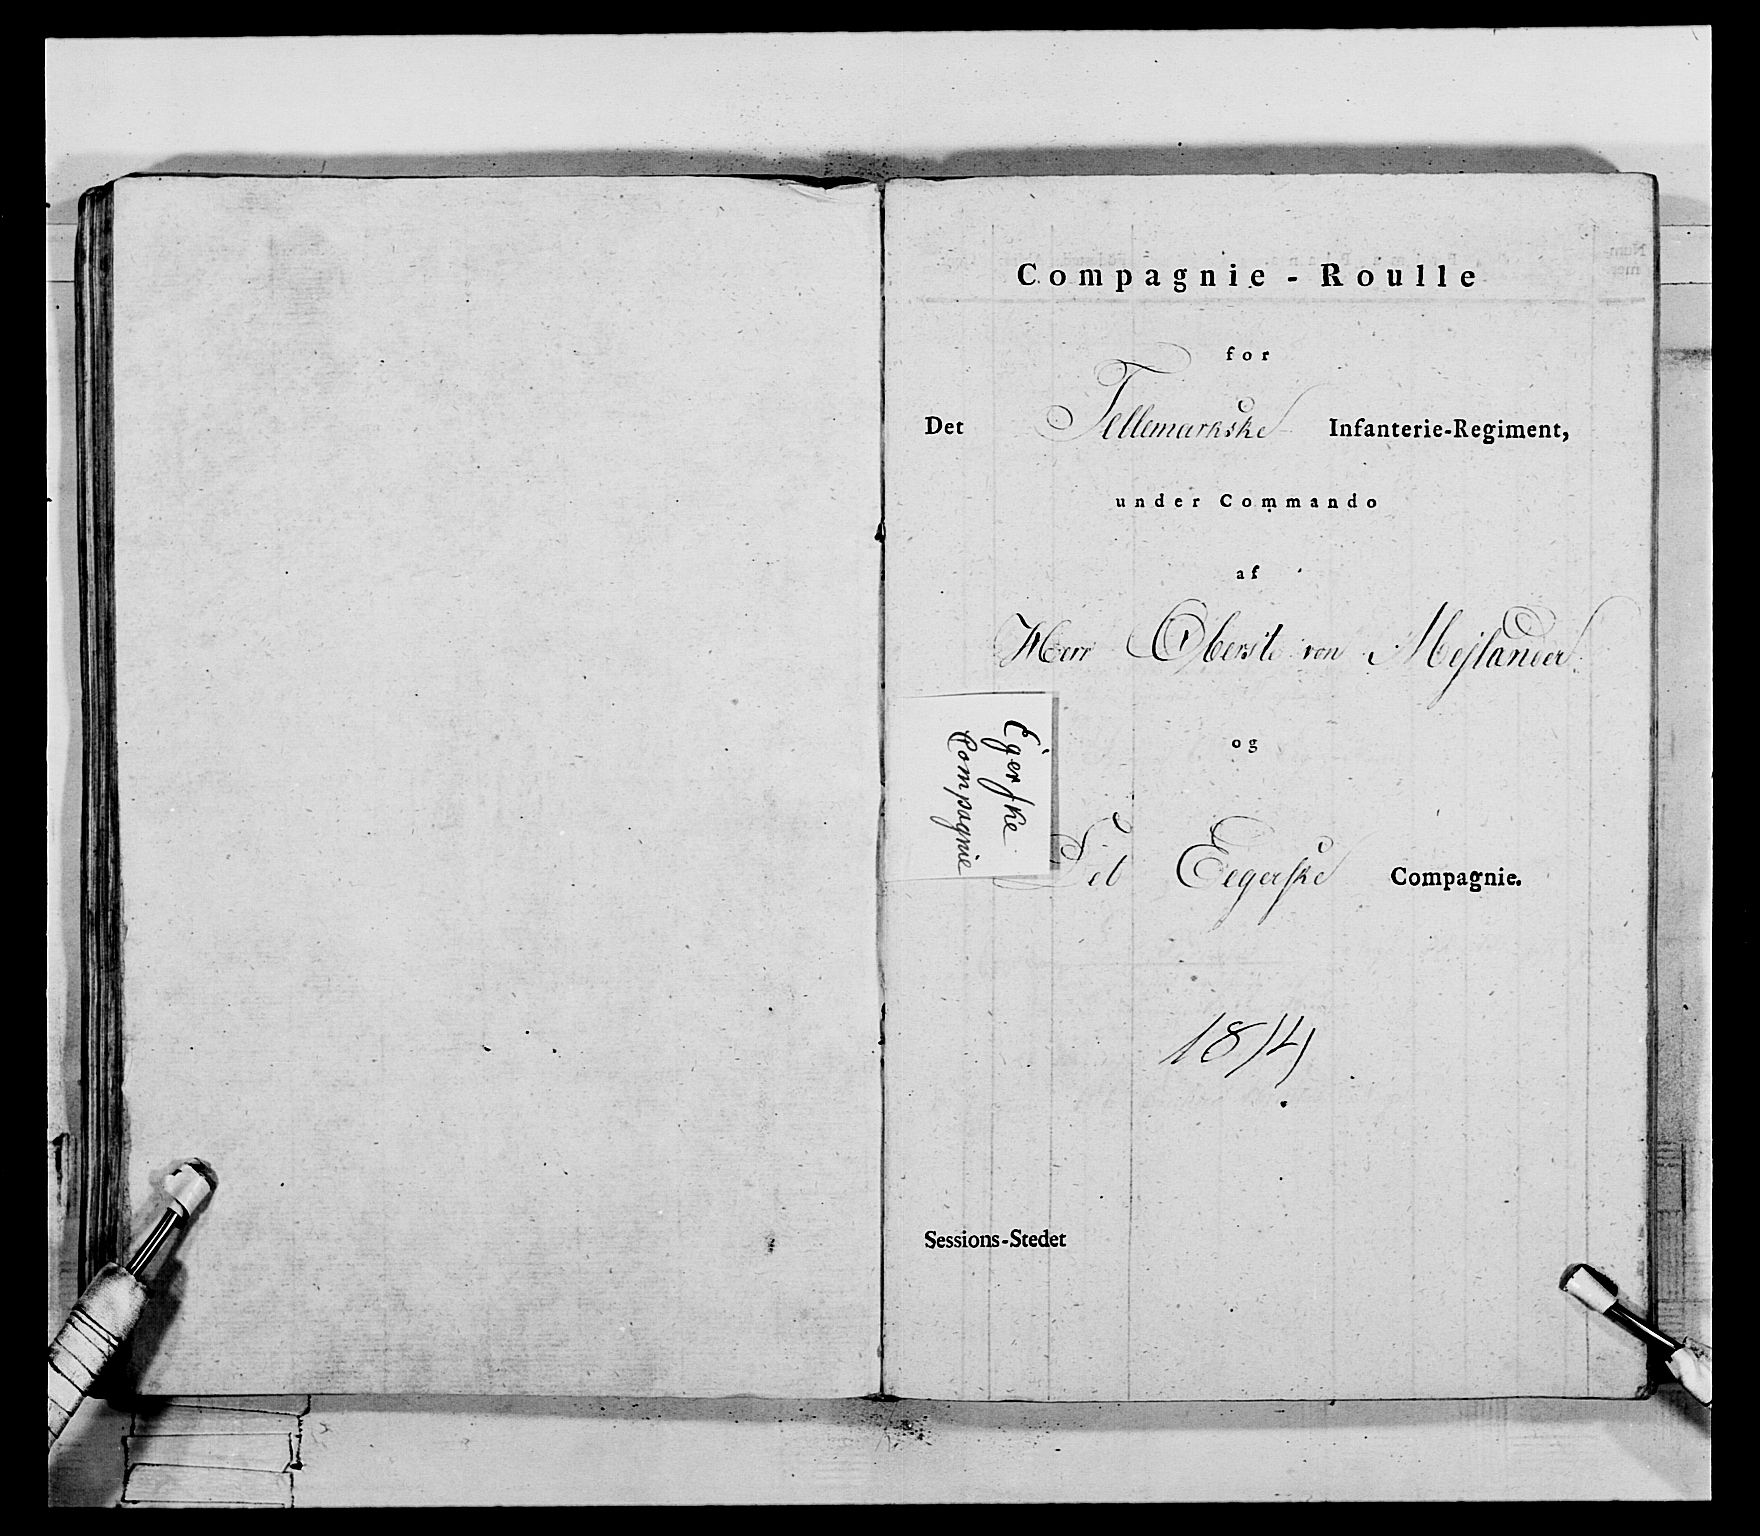 Compagnie - Roulle
for
Det Tellemarkske Infanterie-Regiment,
under Commando
af
Herr Oberste von Mejlænder
og
Egerske
Compagnie
Det Eegerske Compagnie.
1814
Sessions-Stedet